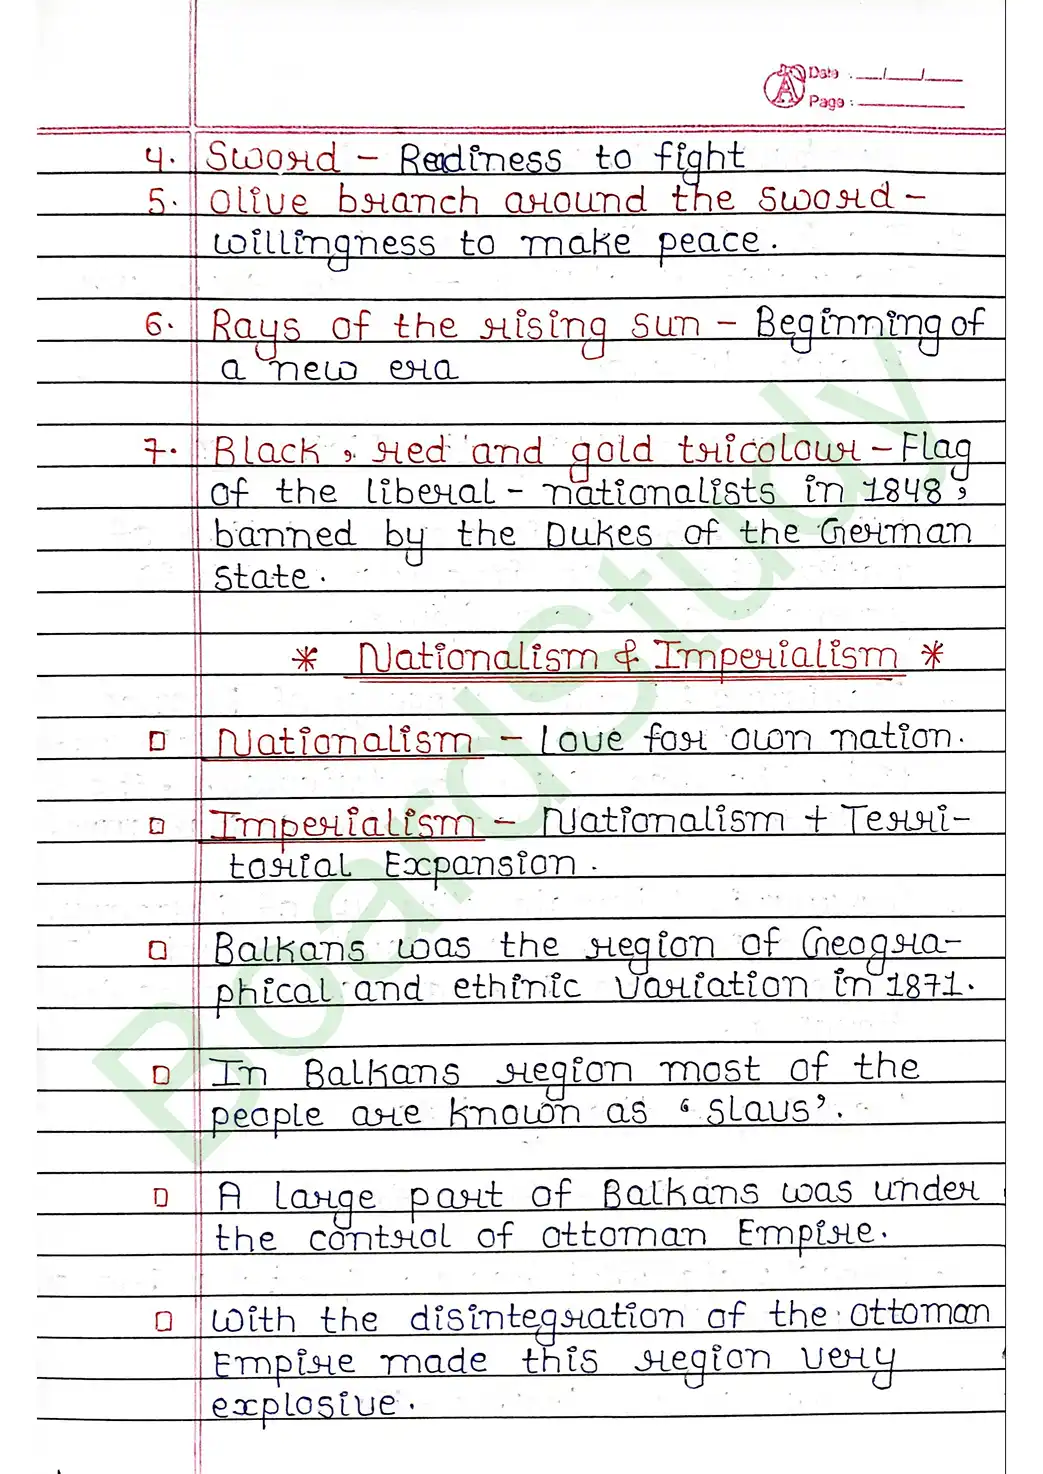 Date : __/__/__
Page : ______
4. Sword - Readiness to fight
5. Olive branch around the sword -
willingness to make peace.
6. Rays of the rising sun - Beginning of
a new era
7. Black, red and gold tricolour - Flag
of the liberal - nationalists in 1848,
banned by the Dukes of the German
state.
* Nationalism & Imperialism *
□ Nationalism - Love for own nation.
□ Imperialism - Nationalism + Terri-
torial Expansion.
□ Balkans was the region of Geogra-
phical and ethinic Variation in 1871.
□ In Balkans region most of the
people are known as ‘Slavs’.
□ A large part of Balkans was under
the control of ottoman Empire.
□ With the disintegration of the ottoman
Empire made this region very
explosive.
BoardStudy